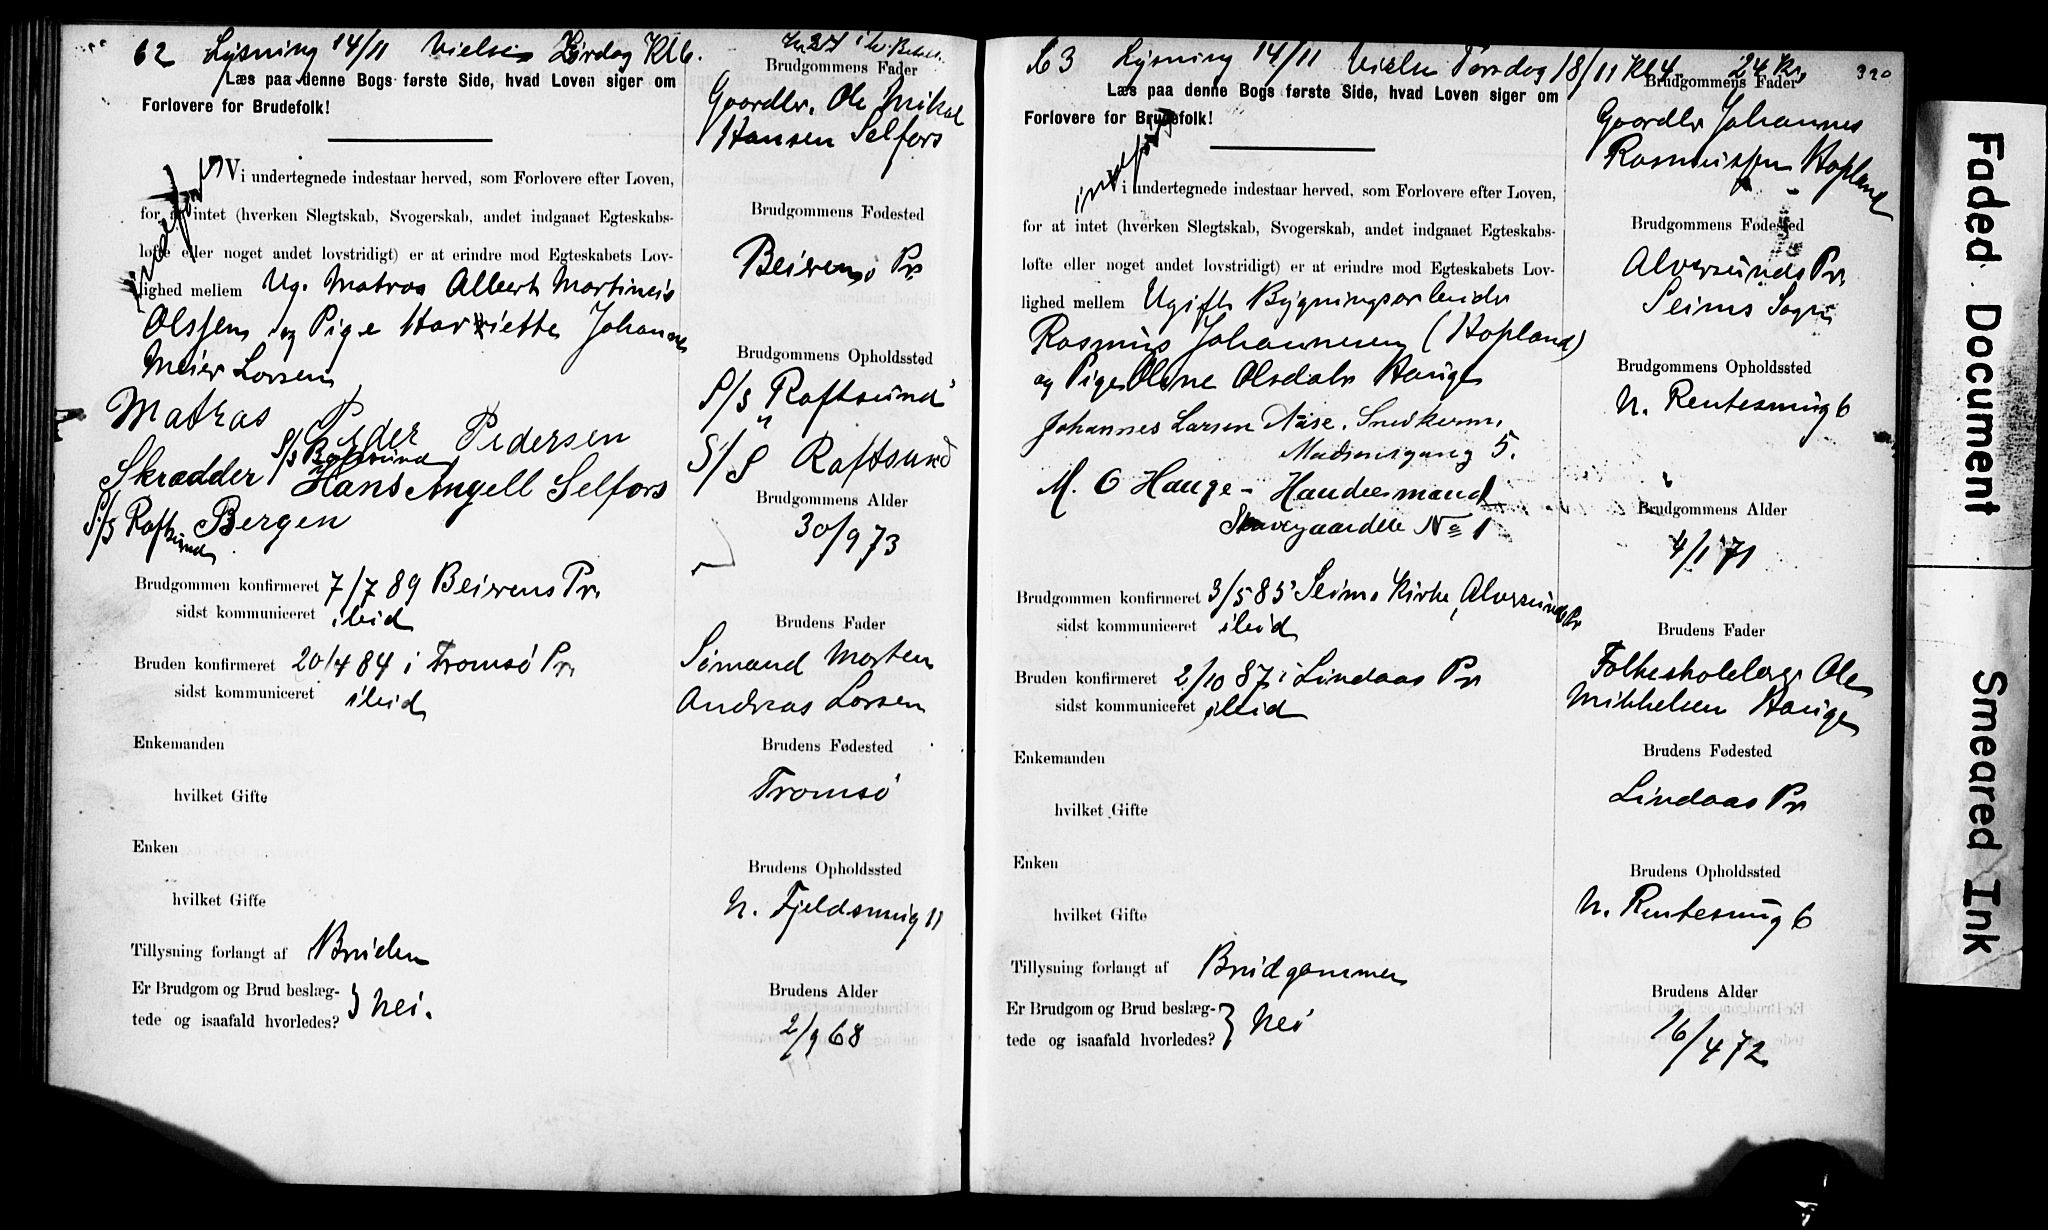 62 Lysning 14/11 Vielse Lørdag Kl 6.
Læs paa denne Bogs første Side, hvad Loven siger om
Forlovere for Brudefolk!
indført
Vi undertegnede indestaar herved, som Forlovere efter Loven,
for at intet (hverken Slegtskab, Svogerskab, andet indgaaet Egteskabs-
løfte eller noget andet lovstridigt) er at erindre mod Egteskabets Lov-
lighed mellem Ug. Matros Albert Martineis
Olssen og Pige Harriette Johanne
Meier Larsen
Matros Peder Pedersen
S/S Raftsund
Skrædder Hans Angell Selfors
S/S Raftsund Bergen
Brudgommen konfirmeret 7/7 89 Beierens Pr.
sidst kommuniceret ileid
Bruden konfirmeret 20/4 84 i Tromsø Pr.
sidst kommuniceret ileid
Enkemanden
hvilket Gifte
Enken
hvilket Gifte
Tillysning forlangt af Bruden
Er Brudgom og Brud beslæg-
tede og isaafald hvorledes? } Nei.
Brudgommens Fader
Gaardbr. Ole Mikal
Hansen Selfors
Brudgommens Fødested
Beierens Pr
Brudgommens Opholdssted
S/S Raftsund
S/S Raftsund
Brudgommens Alder
30/9 73
Brudens Fader
Sømand Morten
Andreas Larsen
Brudens Fødested
Tromsø
Brudens Opholdssted
N. Fjeldsmug 11
Brudens Alder
2/9 68
63 Lysning 14/11 Vielse Torsdag 18/11 Kl 4. 24 Kr. 320
Læs paa denne Bogs første Side, hvad Loven siger om
Forlovere for Brudefolk!
indført
Vi undertegnede indestaar herved, som Forlovere efter Loven,
for at intet (hverken Slegtskab, Svogerskab, andet indgaaet Egteskabs-
løfte eller noget andet lovstridigt) er at erindre mod Egteskabets Lov-
lighed mellem Ugift Bygningsarbeider
Rasmus Johannesen (Hopland)
og Pige Oline Olsdatr Hauge
Johannes Larsen Næse. Snedkersv.
Madamsgang 5.
M. O Hauge - Handelsmand
Skivegaarden No 1
Brudgommen konfirmeret 3/5 85 Seims Kirke, Alversunds Pr
sidst kommuniceret ileid
Bruden konfirmeret 2/10 87 i Lindaas Pr
sidst kommuniceret ileid
Enkemanden
hvilket Gifte
Enken
hvilket Gifte
Tillysning forlangt af Brudgommen
Er Brudgom og Brud beslæg-
tede og isaafald hvorledes? } Nei
Brudgommens Fader
Gaardbr Johannes
Rasmussen Hopland
Brudgommens Fødested
Alversunds Pr.
Seims Sogn
Brudgommens Opholdssted
N. Rentesmug 6
Brudgommens Alder
4/1 71
Brudens Fader
Folkeskolelærer Ole
Mikkelsen Hauge
Brudens Fødested
Lindaas Pr
Brudens Opholdssted
N. Rentesmug 6
Brudens Alder
16/4 72
Faded Document
Smeared Ink